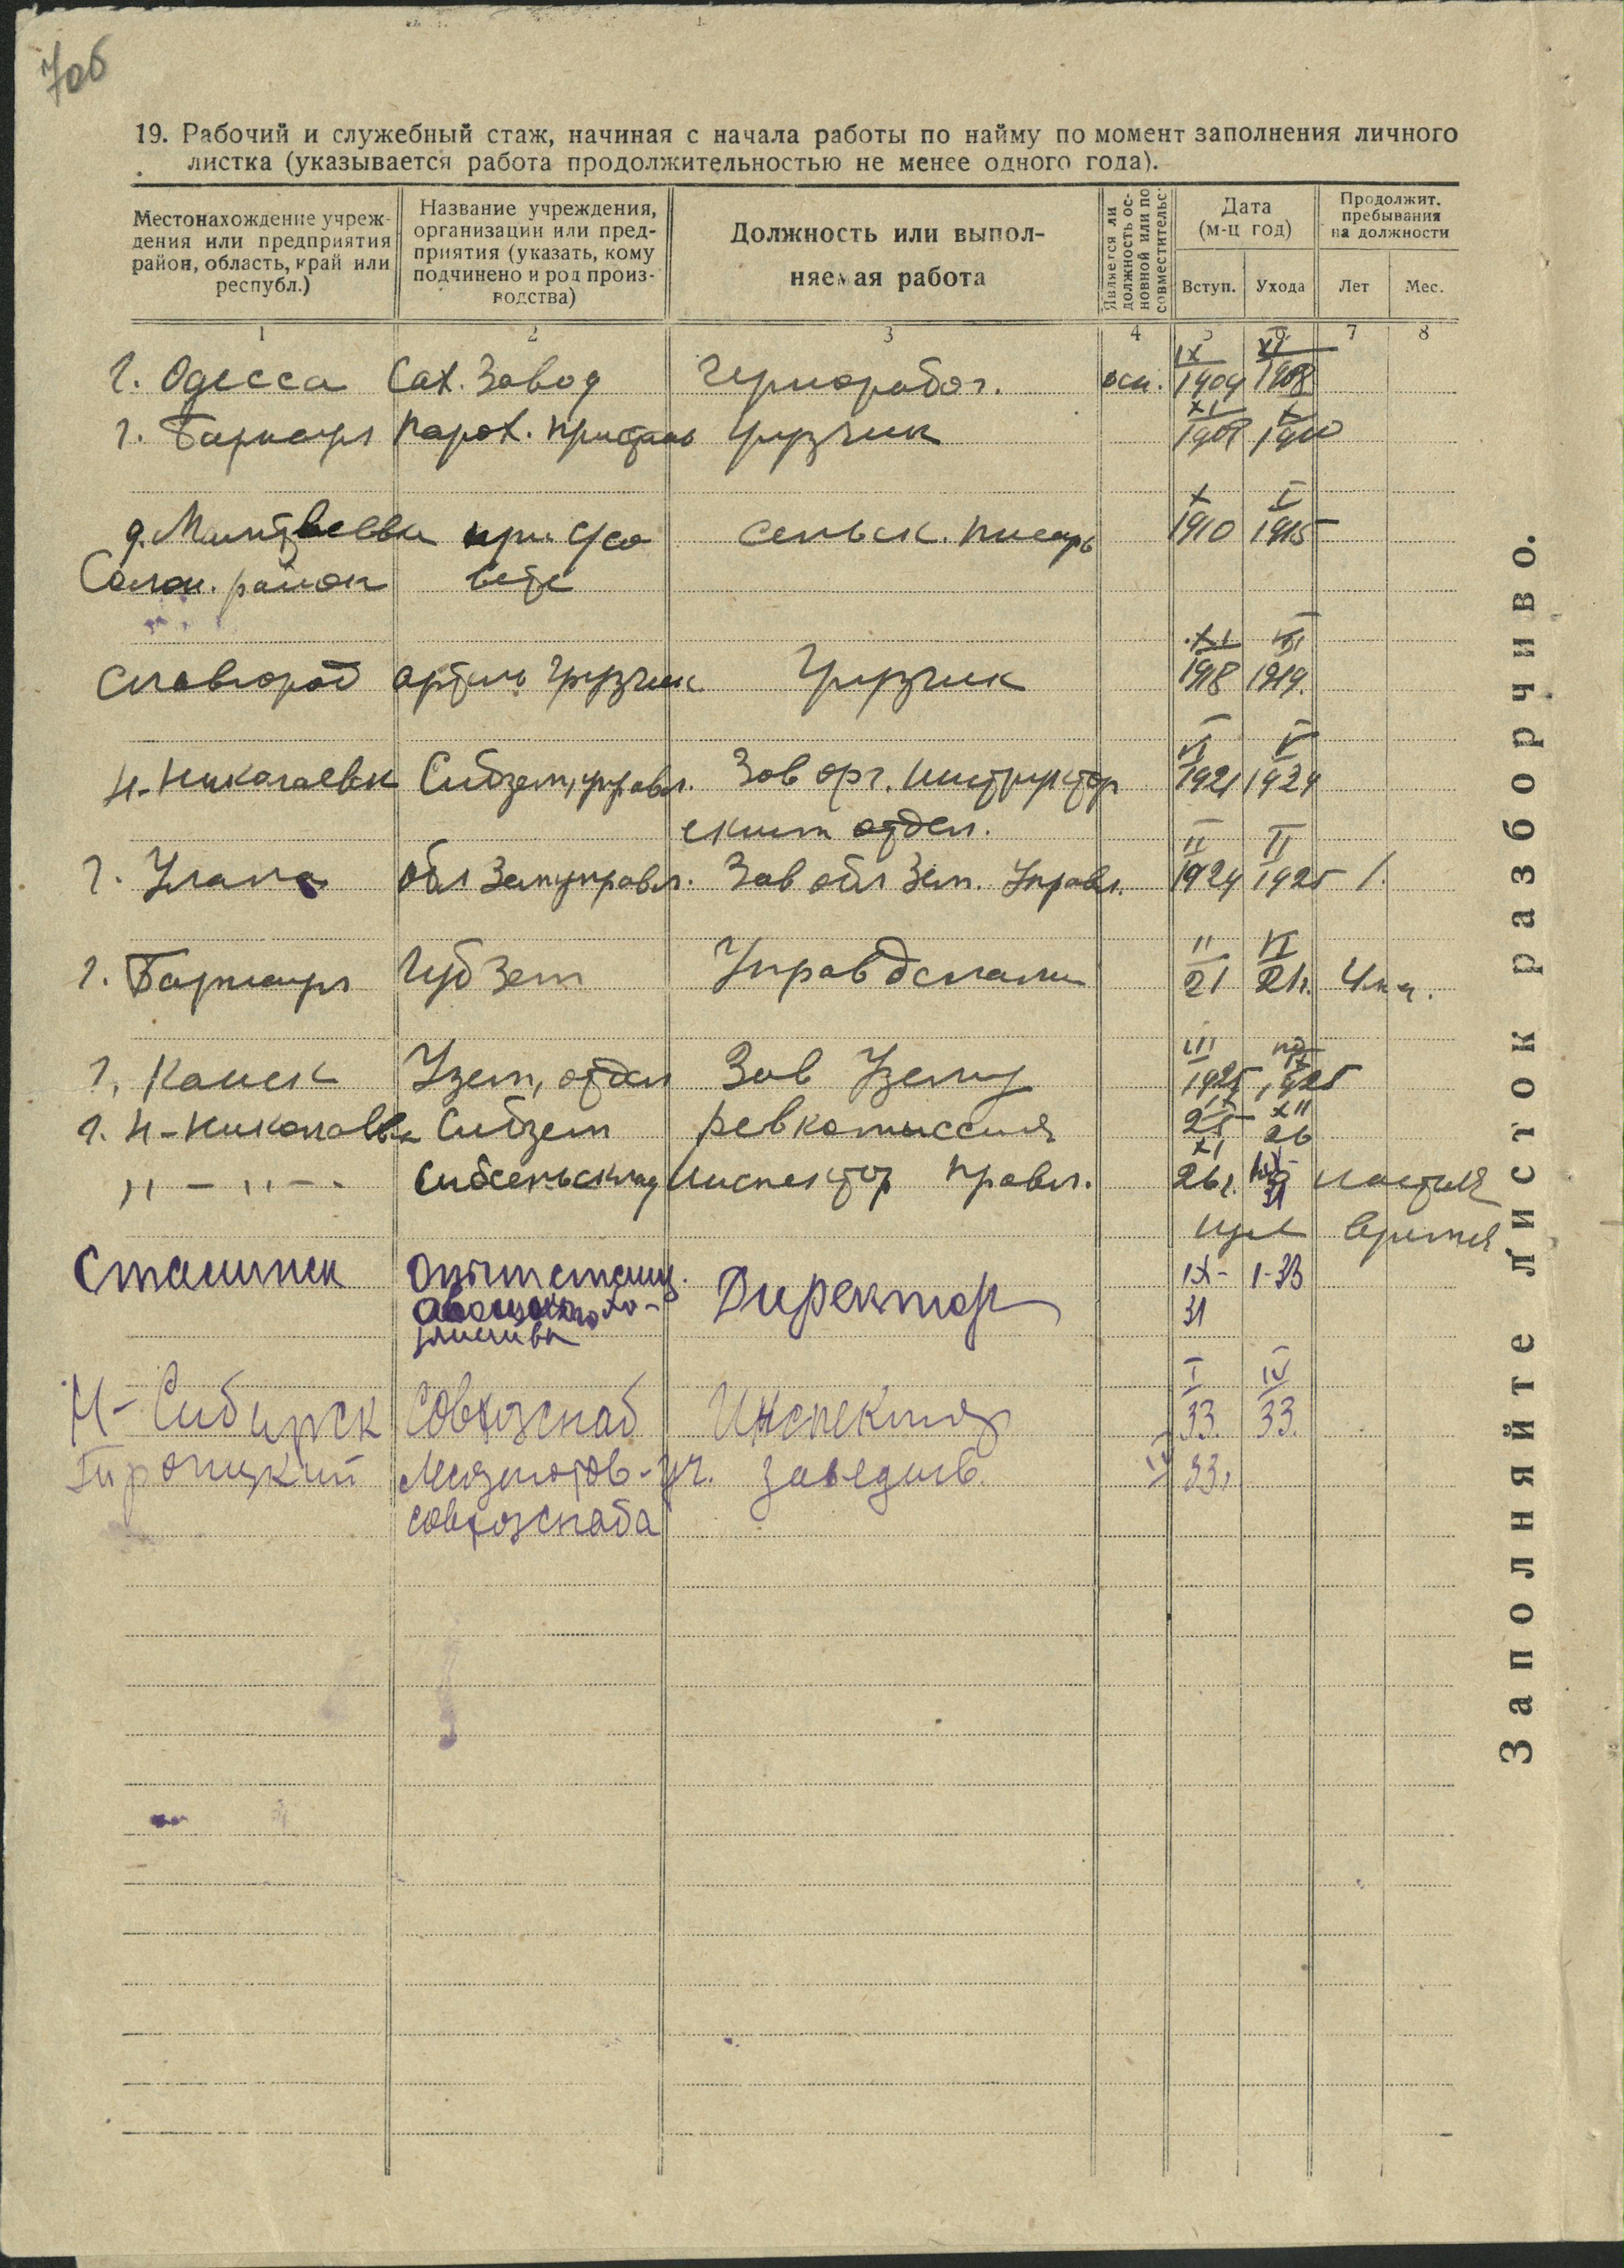 7об
19. Рабочий и служебный стаж, начиная с начала работы по найму по момент заполнения личного
листка (указывается работа продолжительностью не менее одного года).
Местонахождение учреж-
дения или предприятия
район, область, край или
республ.)
Название учреждения,
организации или пред-
приятия (указать, кому
подчинено и род произ-
водства)
Должность или выпол-
няемая работа
Является ли
должность ос-
новной или по
совместительс.
Дата
(м-ц год)
Вступ. Ухода
Продолжит.
пребывания
на должности
Лет Мес.
1 2 3 4 5 6 7 8
IX XI
г. Одесса Сах. Завод Чернорабоч. осн. 1904 1908
XI X
г. Барнаул Парох. пристань грузчик 1908 1910
X I
д. Матвеевка при сусо сельск. писарь 1910 1915
Солон. район вете
XI VIII
Славгород артель грузчик Грузчик 1918 1919.
VI V
Н-Николаевск Сибземуправл. Зав орг. инструктор 1921 1924
ским отдел.
II II
г. Улала обл Земуправл. Зав обл Зем. Управл. 1924 1925 1.
II VI
г. Барнаул ГубЗем Управделами 21 21г. 4 м.
III по IX
г. Каинск Узем, отдел Зав Узему 1925 1925
IX XII
г. Н-Николаевск Сибзем ревкомиссия 25 26
XI
„ — „ — Сибсельсклад Инспектор правл. 26г. настоя
щее время
Сталинск Опытстанц. Директор IX- 1-33
овощного хо- 31
зяйства
I IV
Н-Сибирск Совхозснаб Инспектор 33. 33.
совхозснаба заведыв. 33г
Заполняйте листок разборчиво.